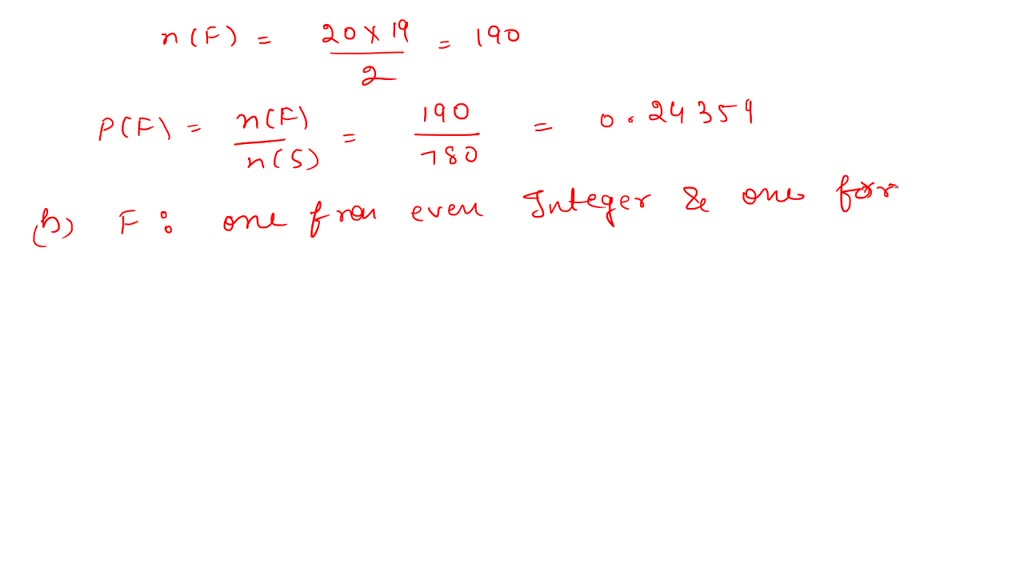 n(F) = 20 × 19 / 2 = 190
P(F) = n(F) / n(S) = 190 / 780 = 0.24359
(b) F: one from even Integer & one for